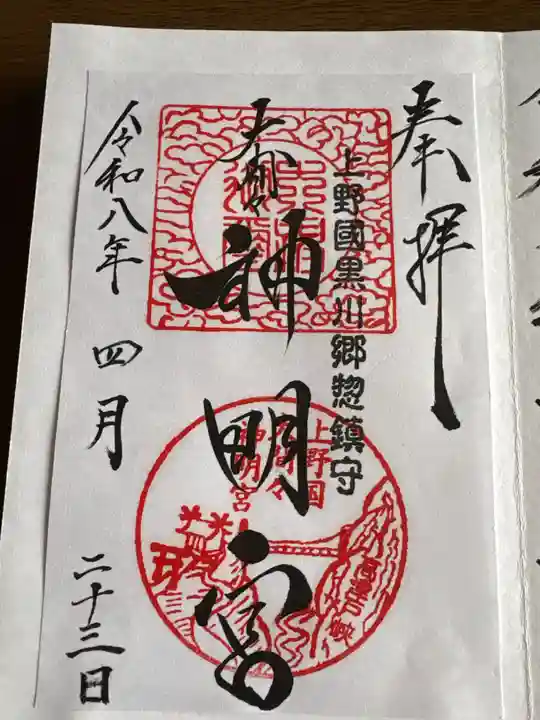 奉拝
上野國黒川郷惣鎮守
神明宮
上野国
神明宮
令和八年
四月
二十三日